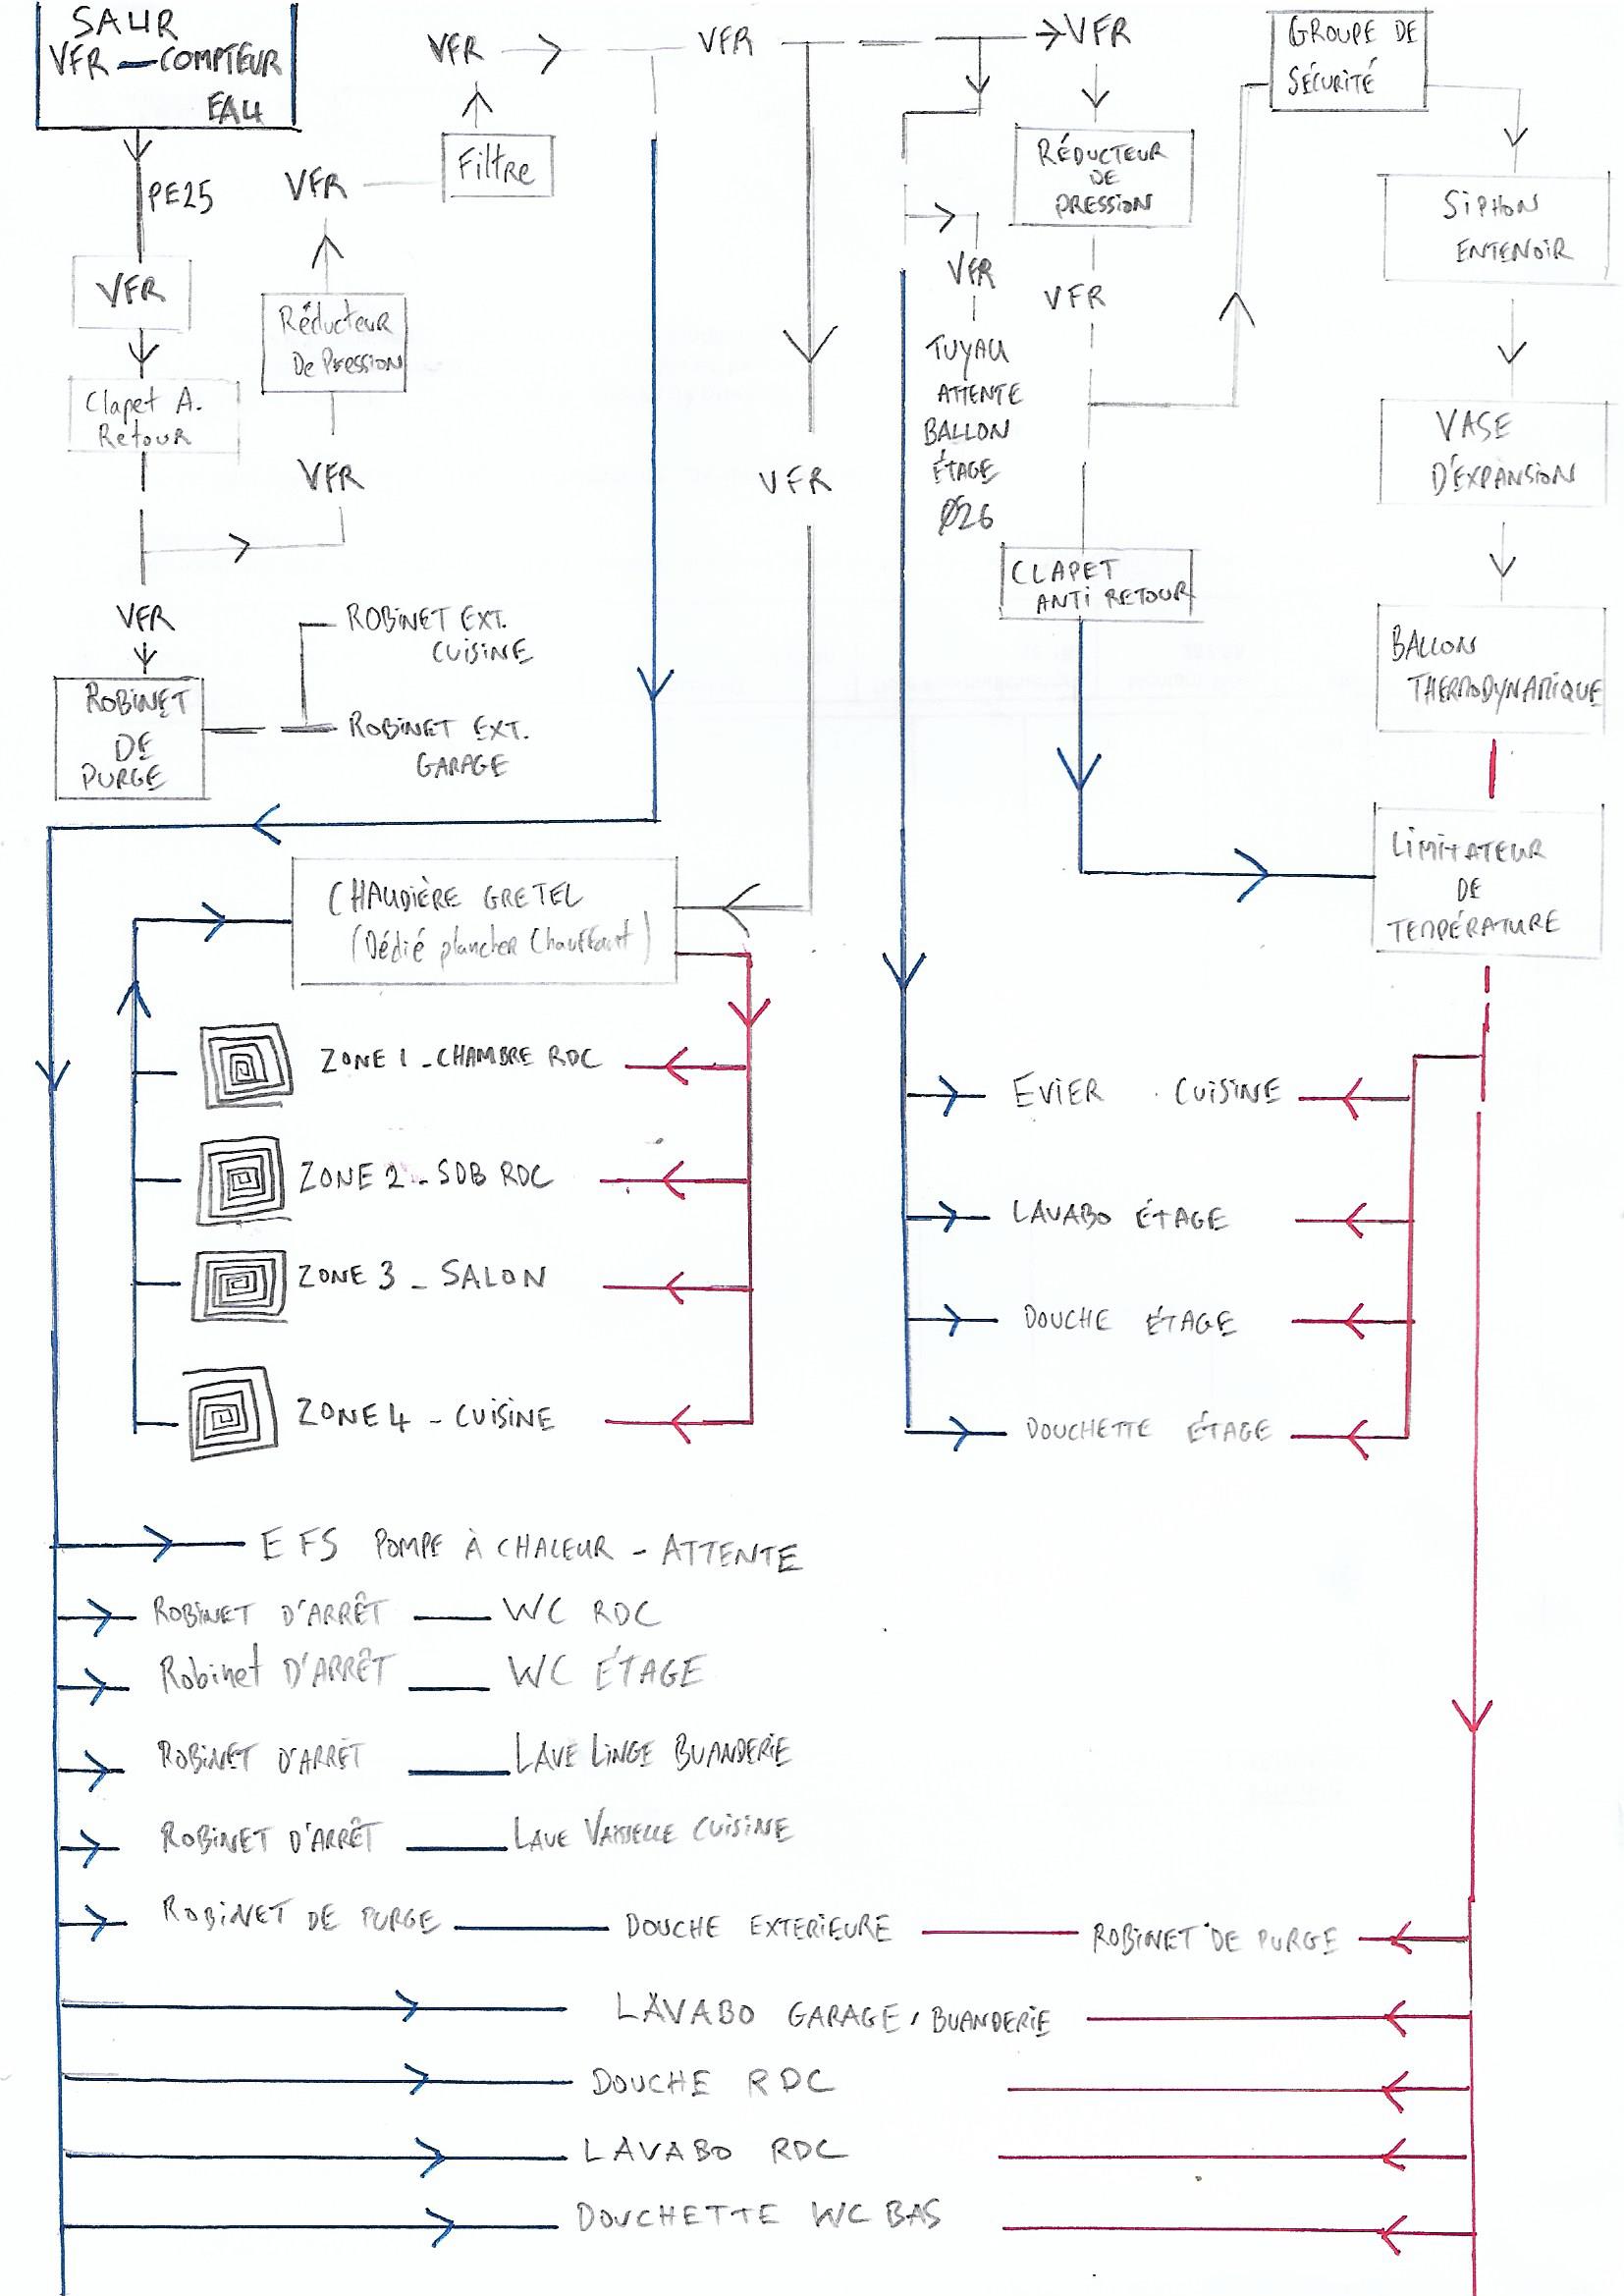 SAUR
VFR — COMPTEUR
EAU
PE25
VFR
Clapet A.
Retour
VFR
ROBINET
DE
PURGE
ROBINET EXT.
CUISINE
ROBINET EXT.
GARAGE
VFR
Réducteur
De Pression
VFR
Filtre
VFR
VFR
VFR
VFR
RÉDUCTEUR
DE
PRESSION
VFR
VFR
TUYAU
ATTENTE
BALLON
ÉTAGE
Ø26
CLAPET
ANTI RETOUR
GROUPE DE
SÉCURITÉ
SIPHON
ENTENOIR
VASE
D'EXPANSION
BALLON
THERMODYNAMIQUE
LIMITATEUR
DE
TEMPÉRATURE
CHAUDIÈRE GRETEL
(Dédié plancher Chauffant)
ZONE 1 - CHAMBRE RDC
ZONE 2 - SDB RDC
ZONE 3 - SALON
ZONE 4 - CUISINE
EVIER CUISINE
LAVABO ÉTAGE
DOUCHE ÉTAGE
DOUCHETTE ÉTAGE
EFS POMPE À CHALEUR - ATTENTE
ROBINET D'ARRÊT WC RDC
Robinet D'ARRÊT WC ÉTAGE
ROBINET D'ARRÊT LAVE LINGE BUANDERIE
ROBINET D'ARRÊT LAVE VAISSELLE CUISINE
ROBINET DE PURGE DOUCHE EXTERIEURE ROBINET DE PURGE
LAVABO GARAGE, BUANDERIE
DOUCHE RDC
LAVABO RDC
DOUCHETTE WC BAS